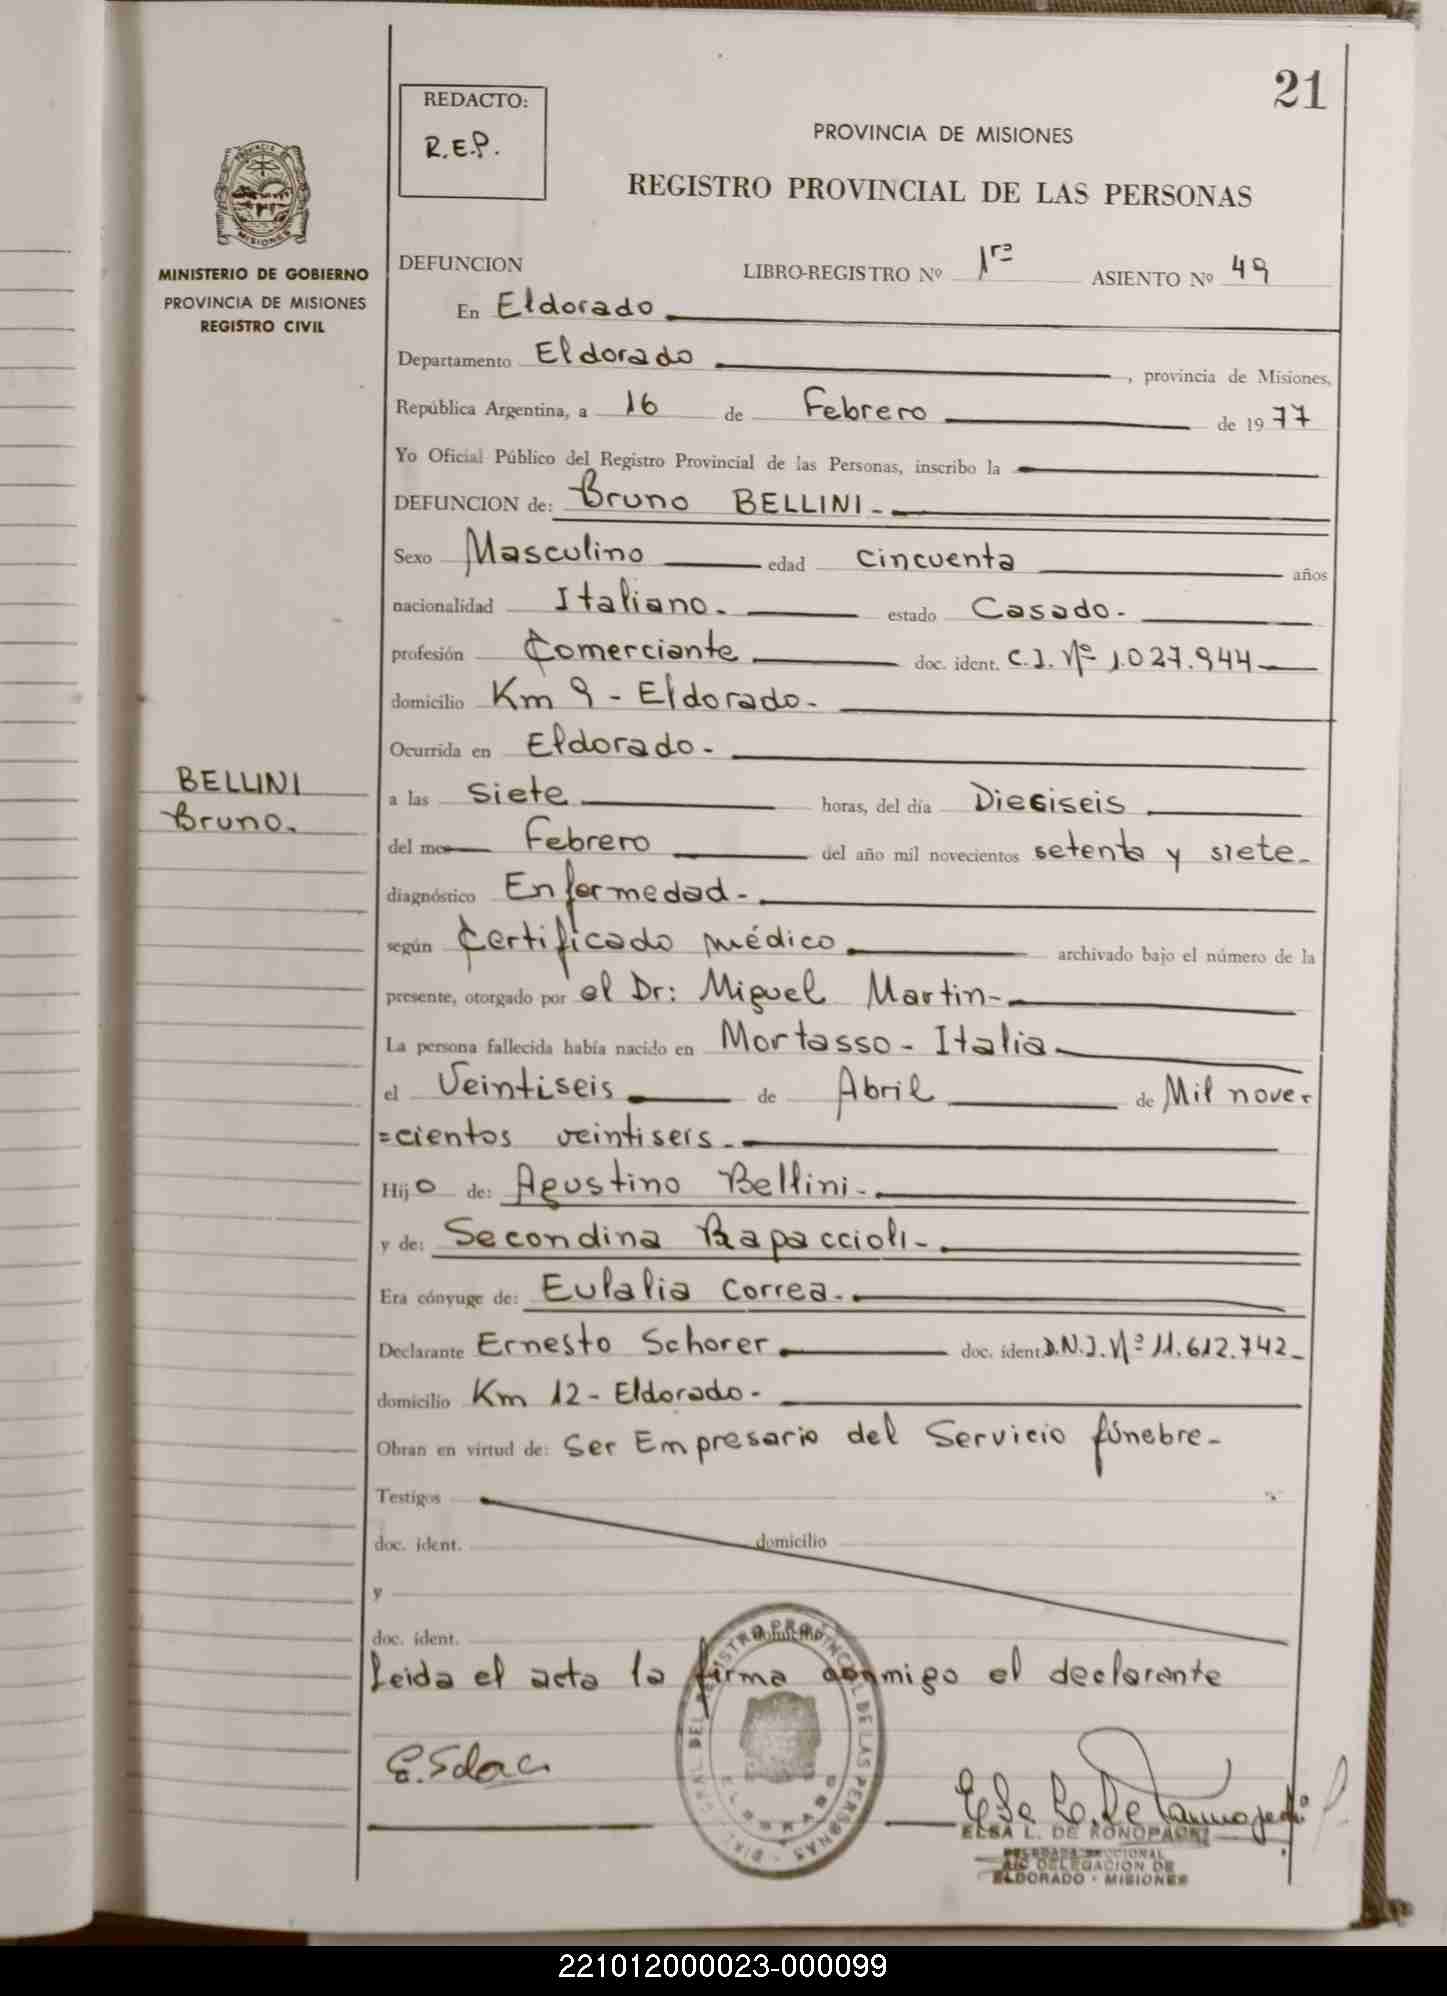 21
REDACTO:
R.E.P.
PROVINCIA DE MISIONES
REGISTRO PROVINCIAL DE LAS PERSONAS
MINISTERIO DE GOBIERNO
PROVINCIA DE MISIONES
REGISTRO CIVIL
DEFUNCION LIBRO-REGISTRO Nº 1ra ASIENTO Nº 49
En Eldorado
Departamento Eldorado , provincia de Misiones,
República Argentina, a 16 de Febrero de 1977
Yo Oficial Público del Registro Provincial de las Personas, inscribo la
DEFUNCION de: Bruno BELLINI-
Sexo Masculino edad cincuenta años
nacionalidad Italiano. estado Casado-
profesión Comerciante doc. ident. C.I. Nº 1.027.944
domicilio Km 9 - Eldorado-
Ocurrida en Eldorado-
BELLINI
Bruno.
a las siete horas, del día Dieciseis
del mes Febrero del año mil novecientos setenta y siete-
diagnóstico Enfermedad-
según Certificado médico archivado bajo el número de la
presente, otorgado por el Dr: Miguel Martin-
La persona fallecida había nacido en Mortasso - Italia
el Veintiseis de Abril de Mil nove-
=cientos veintiseis-
Hijo de: Agustino Bellini-
y de: Secondina Rapaccioli-
Era cónyuge de: Eulalia Correa-
Declarante Ernesto Schorer doc. ident. D.N.I. Nº 11.612.742-
domicilio Km 12 - Eldorado-
Obran en virtud de: Ser Empresario del Servicio fúnebre-
Testigos
doc. ident. domicilio
y
doc. ident. domicilio
Leida el acta la firma conmigo el declarante
ELSA L. DE KONOPACKI
DELEGACION DE
ELDORADO - MISIONES
221012000023-000099